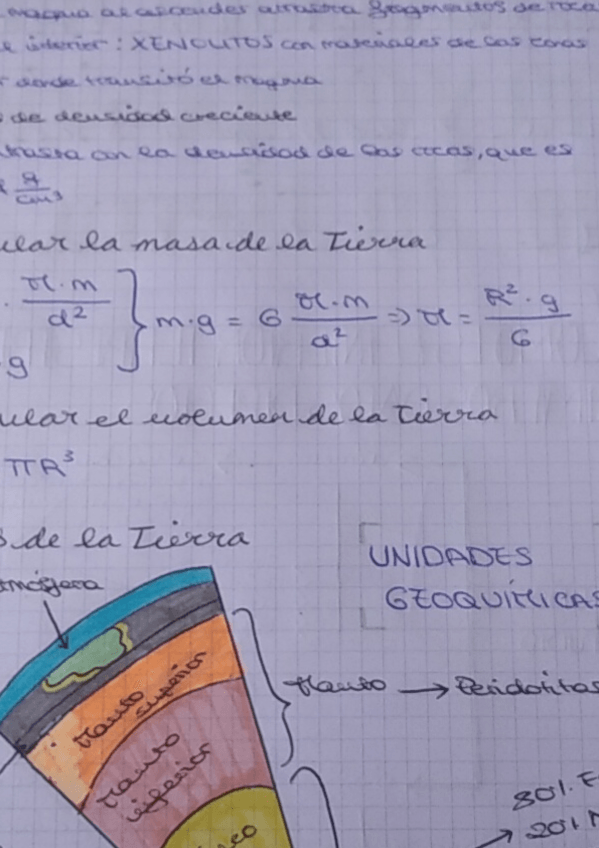 magma al ascender arrastra fragmentos de roca
e interior: XENOLITOS con materiales de las zonas
r donde transitó el magma
de densidad creciente
trasta con la densidad de las rocas, que es
g/cm³
ular la masa de la Tierra
· M·m/d² } m·g = G M·m/d² => M = R²·g/G
g
ular el volumen de la Tierra
πR³
s de la Tierra
UNIDADES
GEOQUÍMICAS
tmósfera
Manto superior
Manto → Peridotitas
Manto inferior
80%
eo
→ 20%